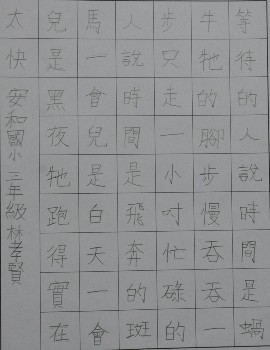 等待的人說時間是蝸
牛牠的腳步慢吞吞一
步只走一小吋忙碌的
人說時間是飛奔的斑
馬一會兒是白天一會
兒是黑夜牠跑得實在
太快 安和國小 三年級 林孝賢